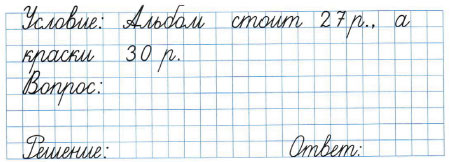 Условие: Альбом стоит 27р., а
краски 30 р.
Вопрос:
Решение: Ответ: